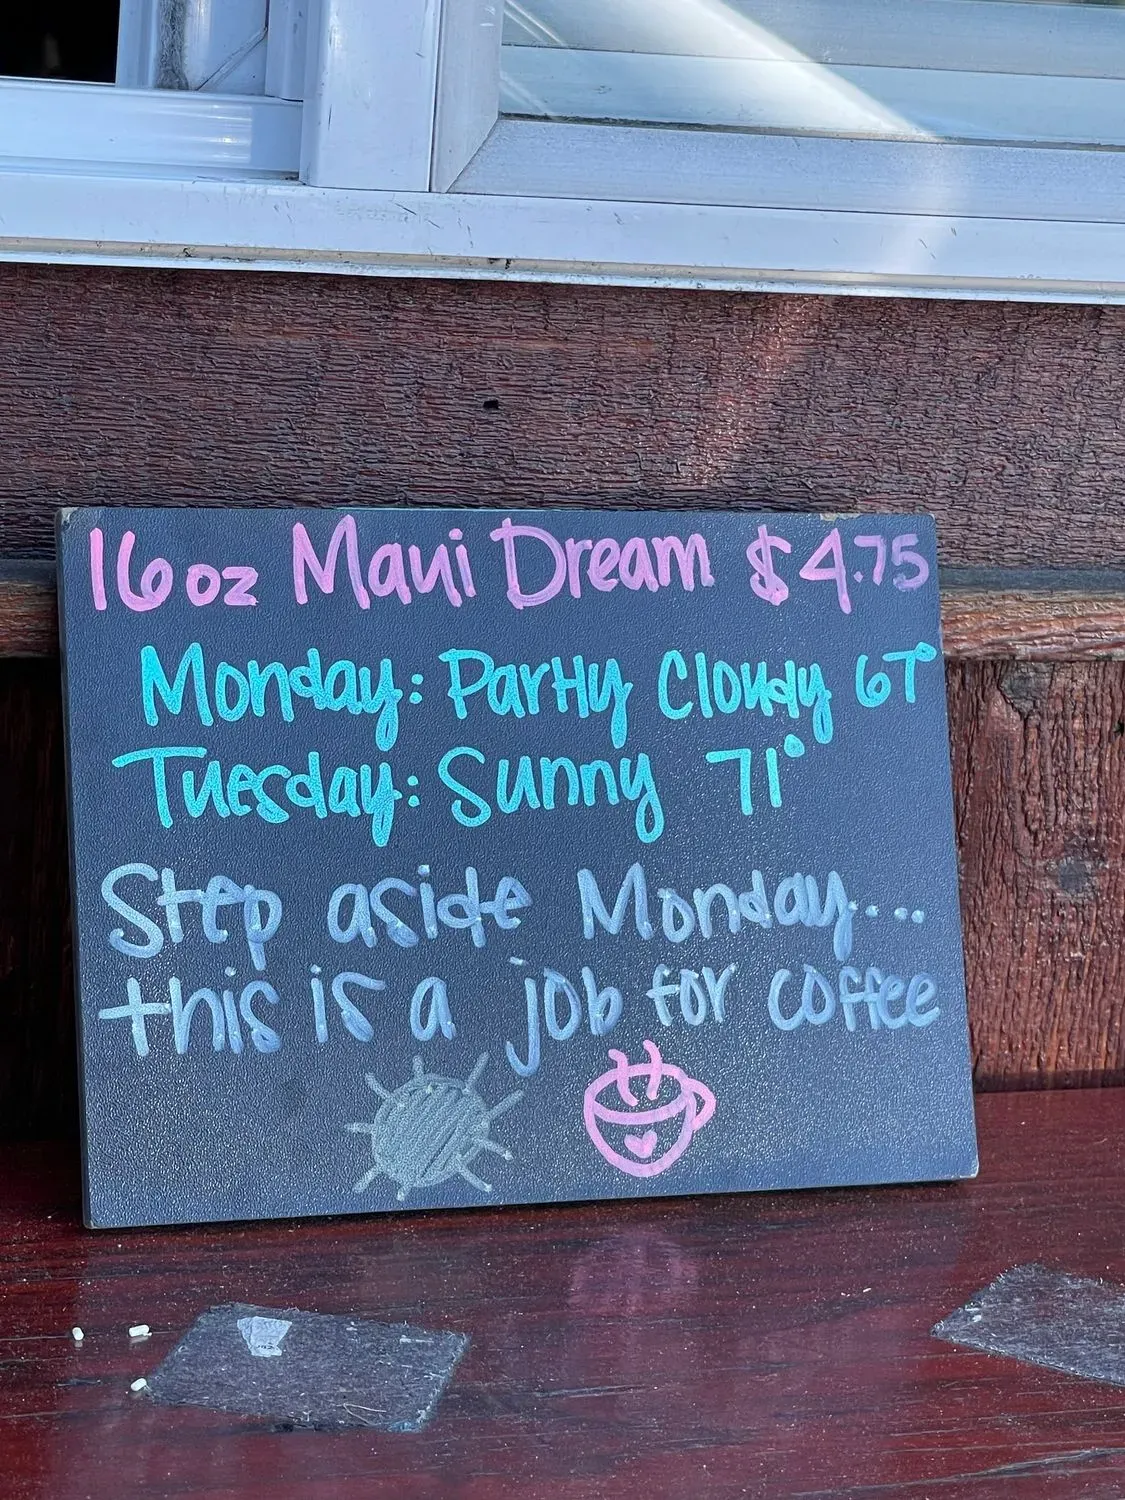 16oz Maui Dream $4.75
Monday: Partly Cloudy 67°
Tuesday: Sunny 71°
Step aside Monday...
this is a job for coffee